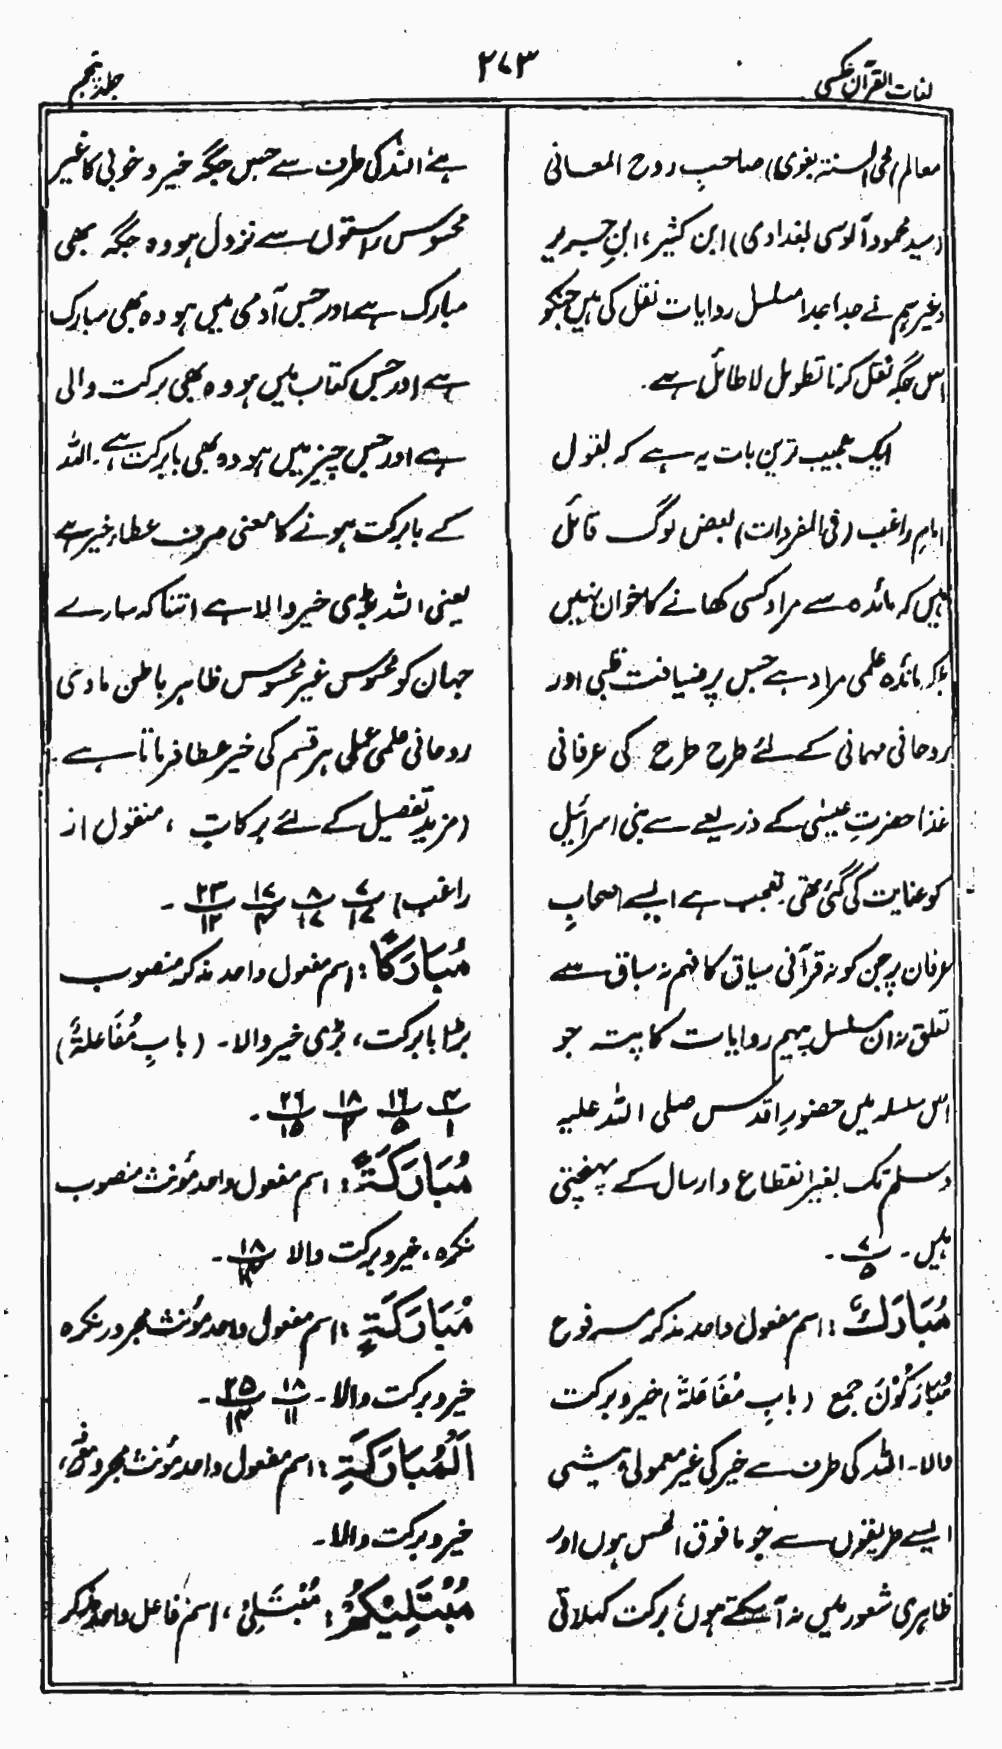 لغات القرآن عکسی
۲۷۳
جلد پنجم
معالم (محی السنۃ بغوی) صاحبِ روح المعانی
(سید محمود آلوسی بغدادی) ابن کثیر، ابنِ جریر
وغیرہم نے جدا جدا مسلسل روایات نقل کی ہیں جنکو
اس جگہ نقل کرنا تطویل لاطائل ہے۔
ایک عجیب ترین بات یہ ہے کہ بقول
امامِ راغب (فی المفردات) بعض لوگ قائل
ہیں کہ مائدہ سے مراد کسی کھانے کا خوان نہیں
بلکہ مائدہ علمی مراد ہے جس پر ضیافت قلبی اور
روحانی مہمانی کے لئے طرح طرح کی عرفانی
غذا حضرتِ عیسٰی کے ذریعے سے بنی اسرائیل
کو عنایت کی گئی تھی۔ تعجب ہے ایسے اصحابِ
عرفان پر جن کو نہ قرآنی سیاق کا فہم نہ سباق سے
تعلق نہ ان مسلسل پیہم روایات کا پتہ جو
اس سلسلہ میں حضورِ اقدس صلی اللہ علیہ
وسلم تک بغیر انقطاع و ارسال کے پہنچتی
ہیں۔ ۷/۵۔
مُبَارَكٌ : اسم مفعول واحد مذکر مرفوع
مُبَارَكُوْنَ جمع (بابِ مُفَاعَلَۃ) خیر و برکت
والا۔ اللہ کی طرف سے خیر کی غیر معمولی بیشی
ایسے طریقوں سے جو ما فوق الحس ہوں اور
ظاہری شعور میں نہ آسکتے ہوں برکت کہلاتی
ہے اللہ کی طرف سے جس جگہ خیر و خوبی کا غیر
محسوس راستوں سے نزول ہو وہ جگہ بھی
مبارک ہے اور جس آدمی میں ہو وہ بھی مبارک
ہے اور جس کتاب میں ہو وہ بھی برکت والی
ہے اور جس چیز میں ہو وہ بھی بابرکت ہے۔ اللہ
کے بابرکت ہونے کا معنی صرف عطاء خیر ہے
یعنی اللہ بڑی خیر والا ہے اتنا کہ سارے
جہان کو محسوس غیر محسوس ظاہر باطن مادی
روحانی علمی عملی ہر قسم کی خیر عطا فرماتا ہے۔
(مزید تفصیل کے لئے برکات ، منقول از
راغب) ۷/۱۷ ۸/۱۷ ۱۷/۴ ۲۳/۱۲ ۔
مُبَارَكًا : اسم مفعول واحد مذکر منصوب
بڑا بابرکت، بڑی خیر والا۔ (بابِ مُفَاعلۃ)
۴/۱ ۱۶/۵ ۱۸/۲ ۲۶/۱۵ ۔
مُبَارَكَةً : اسم مفعول واحد مؤنث منصوب
نکرہ، خیر و برکت والا ۱۸/۱۴۔
مُبَارَكَةٍ : اسم مفعول واحد مؤنث مجرور نکرہ
خیر و برکت والا۔ ۱۸/۱۱ ۲۵/۱۴ ۔
اَلْمُبَارَكَةِ : اسم مفعول واحد مؤنث مجرور معرفہ،
خیر و برکت والا۔
مُبْتَلِيْكُمْ : مُبْتَلِیْ ، اسم فاعل واحد مذکر